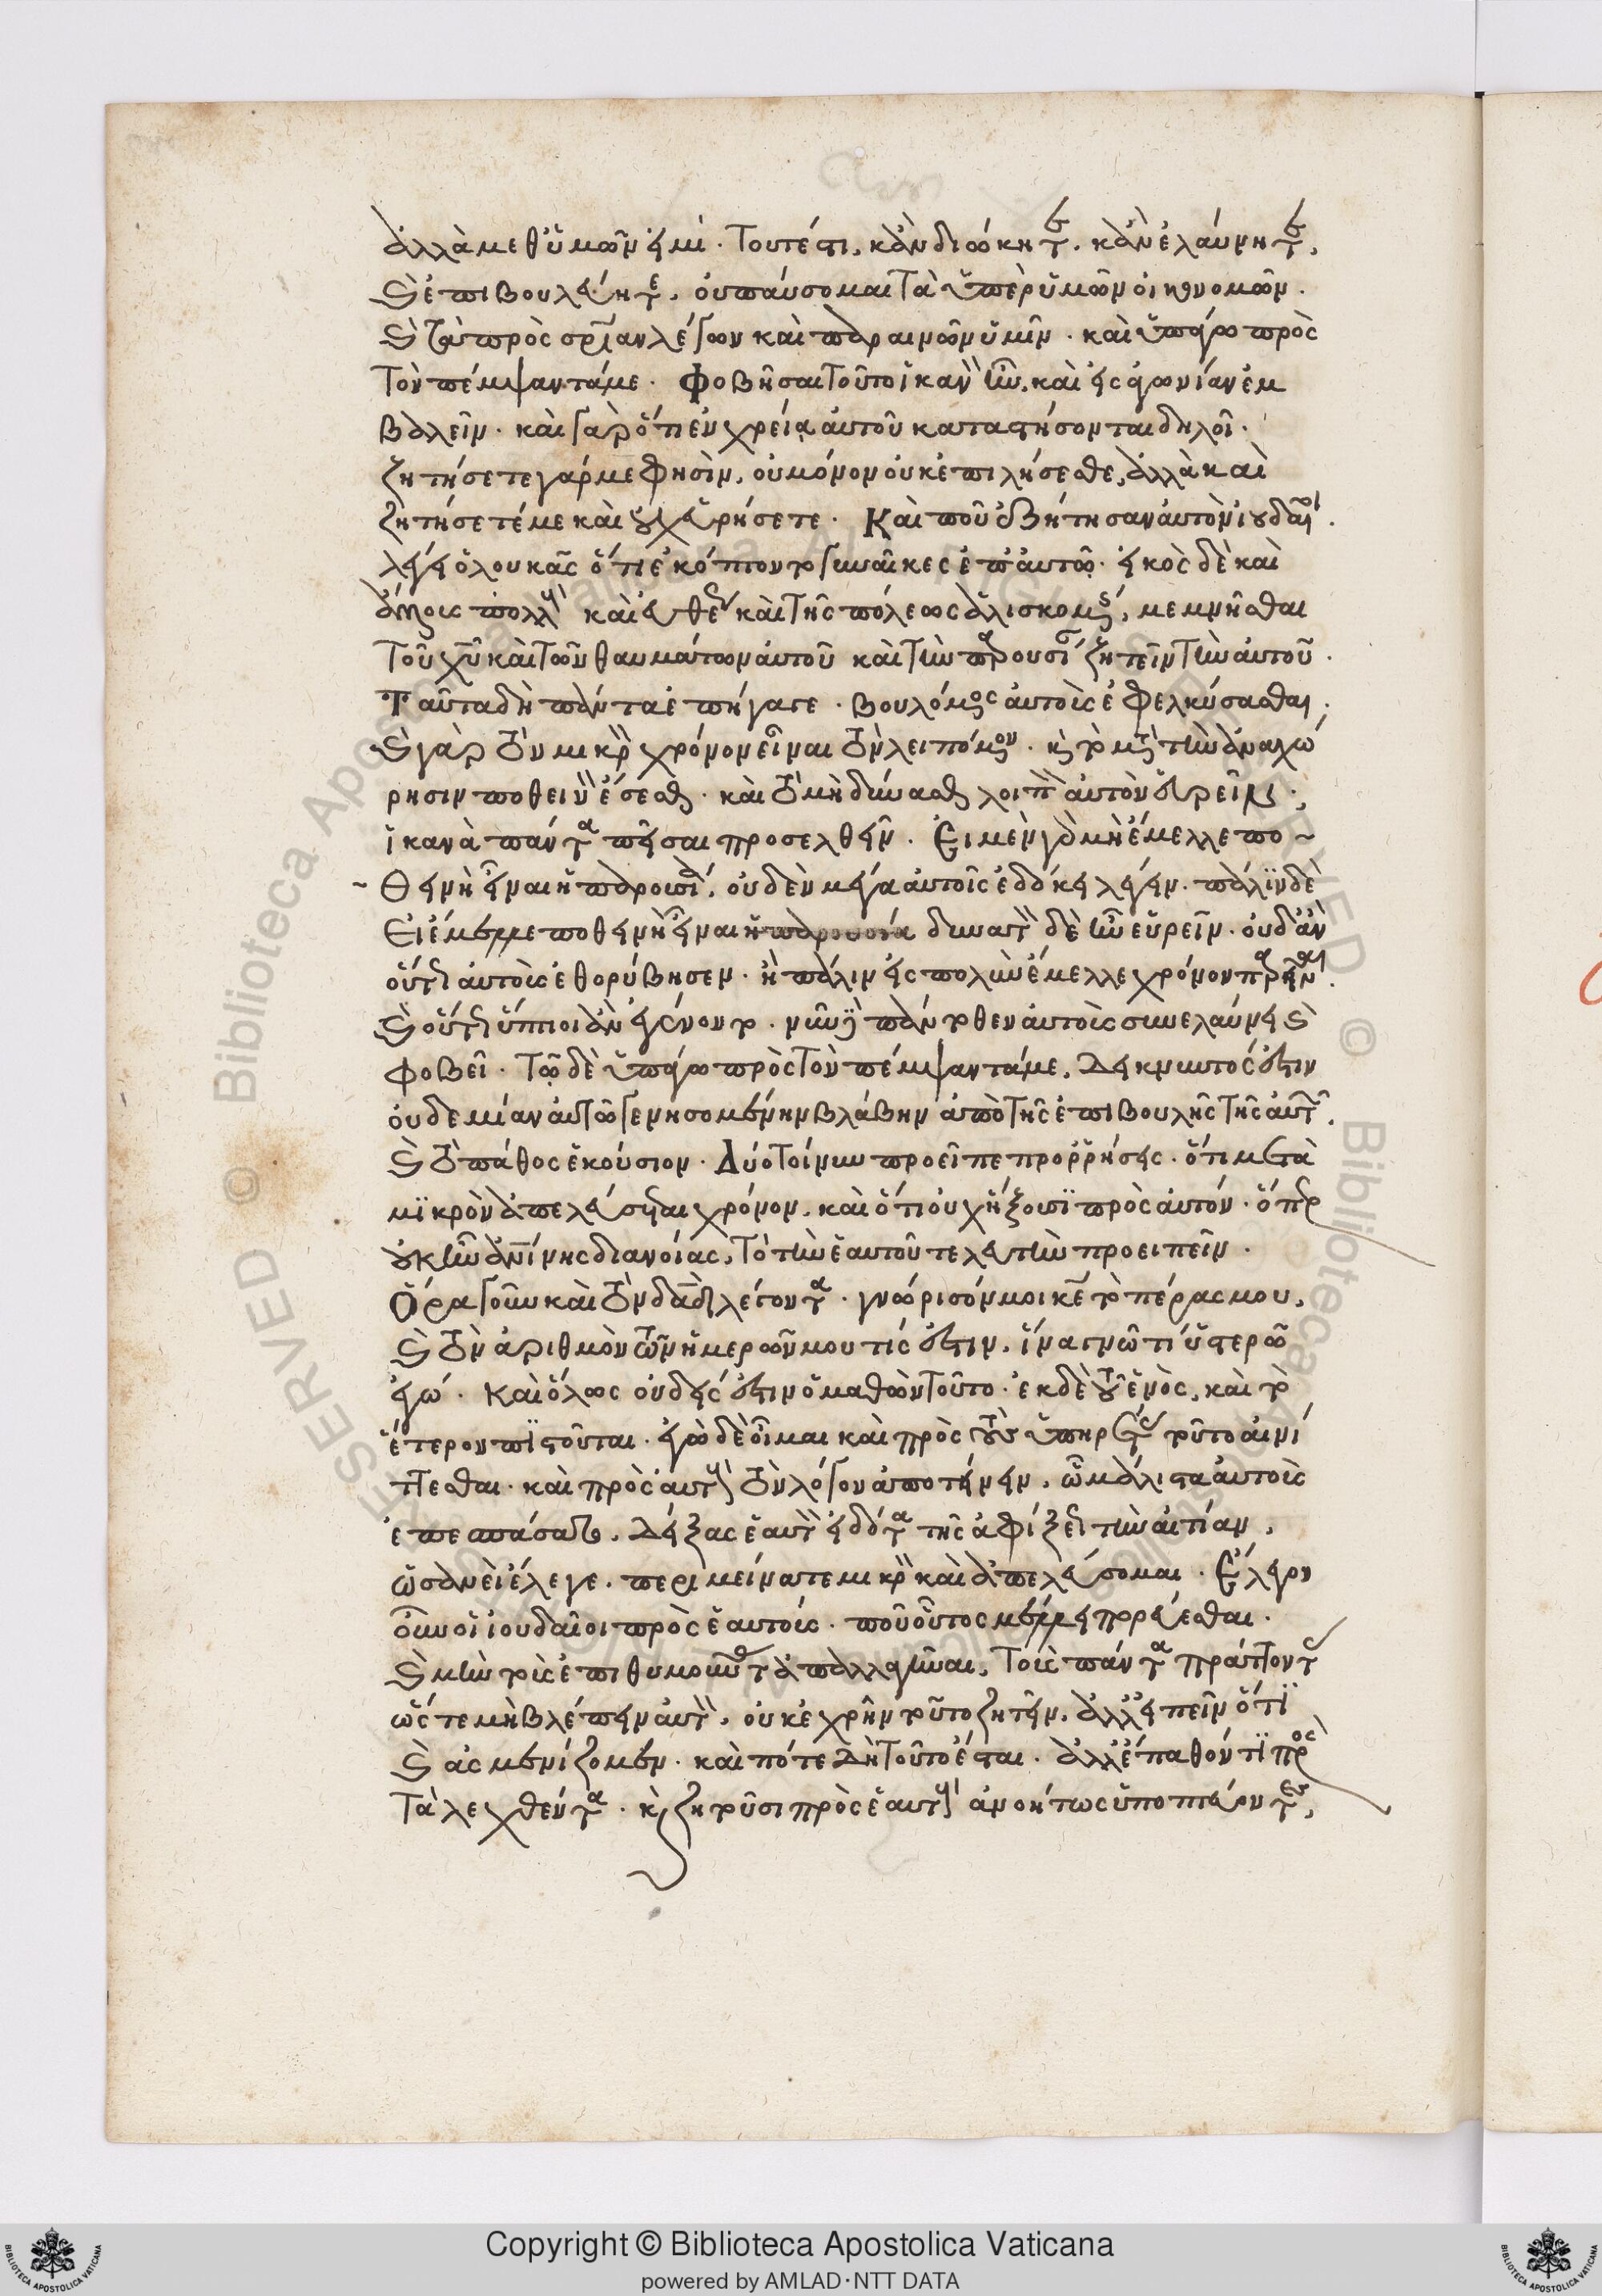 ἀλλὰ μεθ' ὑμῶν εἰμί. Τουτέστι, κἂν διώκητε. κἂν ἐλαύνητε,
καὶ ἐπιβουλεύητε, οὐ παύσομαι τὰ ὑπὲρ ὑμῶν οἰκονομῶν.
καὶ τὰ πρὸς σωτηρίαν λέγων καὶ παραινῶν ὑμῖν. καὶ ὑπάγω πρὸς
τὸν πέμψαντά με. Φοβῆσαι τοῦτο ἱκανὸν ἦν, καὶ εἰς ἀγωνίαν ἐμ
βαλεῖν. καὶ γὰρ ὅτι ἐν χρείᾳ αὐτοῦ καταστήσονται δηλοῖ.
ζητήσετε γάρ με φησὶν, οὐ μόνον οὐκ ἐπιλήσεσθε, ἀλλὰ καὶ
ζητήσετέ με καὶ οὐχ εὑρήσετε. Καὶ ποῦ ἐζήτησαν αὐτὸν ἰουδαῖοι.
λέγει ὁ λουκᾶς ὅτι ἐκόπτοντο γυναῖκες ἐπ' αὐτῷ. εἰκὸς δὲ καὶ
ἄλλους πολλοὺς καὶ εὐθέως καὶ τῆς πόλεως ἁλισκομένης, μεμνῆσθαι
τοῦ χυ καὶ τῶν θαυμάτων αὐτοῦ καὶ τὴν παρουσίαν ζητεῖν τὴν αὐτοῦ.
Ταῦτα δὴ πάντα ἐπήγαγε. βουλόμενος αὐτοὺς ἐφελκύσασθαι.
καὶ γὰρ τὸν μικρὸν χρόνον εἶναι τὸν λειπόμενον. καὶ τὸ μετὰ τὴν ἀναχώ
ρησιν ποθεινὸν ἔσεσθαι. καὶ τὸ μὴ δύνασθαι λοιπὸν αὐτὸν εὑρεῖν.
ἱκανὰ πάντα πεῖσαι προσελθεῖν. Εἰ μὲν γὰρ μὴ ἔμελλε πο~
~θεινὴ εἶναι ἡ παρουσία, οὐδὲν μέγα αὐτοῖς ἐδόκει λέγειν. πάλιν δὲ
Εἰ ἔμελλε ποθεινὴ εἶναι ἡ παρουσία δυνατὸν δὲ ἦν εὑρεῖν. οὐδ' ἂν
οὕτως αὐτοὺς ἐθορύβησεν. ἢ πάλιν εἰς πολὺν ἔμελλε χρόνον παρεῖναι.
καὶ οὕτως ὕπτιοι ἂν ἐγένοντο. νῦν δὲ πάντοθεν αὐτοὺς συνελαύνει καὶ
φοβεῖ. Τῷ δὲ ὑπάγω πρὸς τὸν πέμψαντά με. Δεικνύντος ἐστιν
οὐδεμίαν αὐτῷ γενησομένην βλάβην ἀπὸ τῆς ἐπιβουλῆς τῆς αὐτῶν.
καὶ τὸ πάθος ἑκούσιον. Δύο τοίνυν προεῖπε προρρήσεις. ὅτι μετὰ
μικρὸν ἀπελεύσεται χρόνον. καὶ ὅτι οὐχ ἥξουσι πρὸς αὐτόν. ὅπερ
οὐκ ἦν ἀνθρωπίνης διανοίας, τὸ τὴν ἑαυτοῦ τελευτὴν προειπεῖν.
Ὅρα γοῦν καὶ τὸν δαδ λέγοντα. γνώρισόν μοι κε τὸ πέρας μου,
καὶ τὸν ἀριθμὸν τῶν ἡμερῶν μου τίς ἐστιν, ἵνα γνῶ τί ὑστερῶ
ἐγώ. Καὶ ὅλως οὐδείς ἐστιν ὁ μαθὼν τοῦτο. ἐκ δὲ τοῦ ἑνὸς, καὶ τὸ
ἕτερον πιστοῦται. ἐγὼ δὲ οἶμαι καὶ πρὸς τοὺς ὑπηρέτας τοῦτο αἰνί
ττεσθαι. καὶ πρὸς αὐτοὺς τὸν λόγον ἀποτείνειν, ᾧ μάλιστα αὐτοὺς
ἐπεσπάσατο. Δείξας ἑαυτὸν εἰδότα τῆς ἀφίξεως τὴν αἰτίαν,
ὡσανεὶ ἔλεγε. περιμείνατε μικρὸν καὶ ἀπελεύσομαι. Εἶπον
οὖν οἱ ἰουδαῖοι πρὸς ἑαυτούς. ποῦ οὗτος μέλλει πορεύεσθαι.
καὶ μὴν τοὺς ἐπιθυμοῦντας ἀπαλλαγῆναι, τοὺς πάντα πράττοντας
ὥστε μὴ βλέπειν αὐτὸν, οὐκ ἐχρῆν τοῦτο ζητεῖν. ἀλλ' εἰπεῖν ὅτι
καὶ ἀσμενίζομεν. καὶ πότε δὴ τοῦτο ἔσται. ἀλλ' ἔπαθόν τι πρὸς
τὰ λεχθέντα. καὶ ζητοῦσι πρὸς ἑαυτοὺς ἀνοήτως ὑποπτεύοντες,